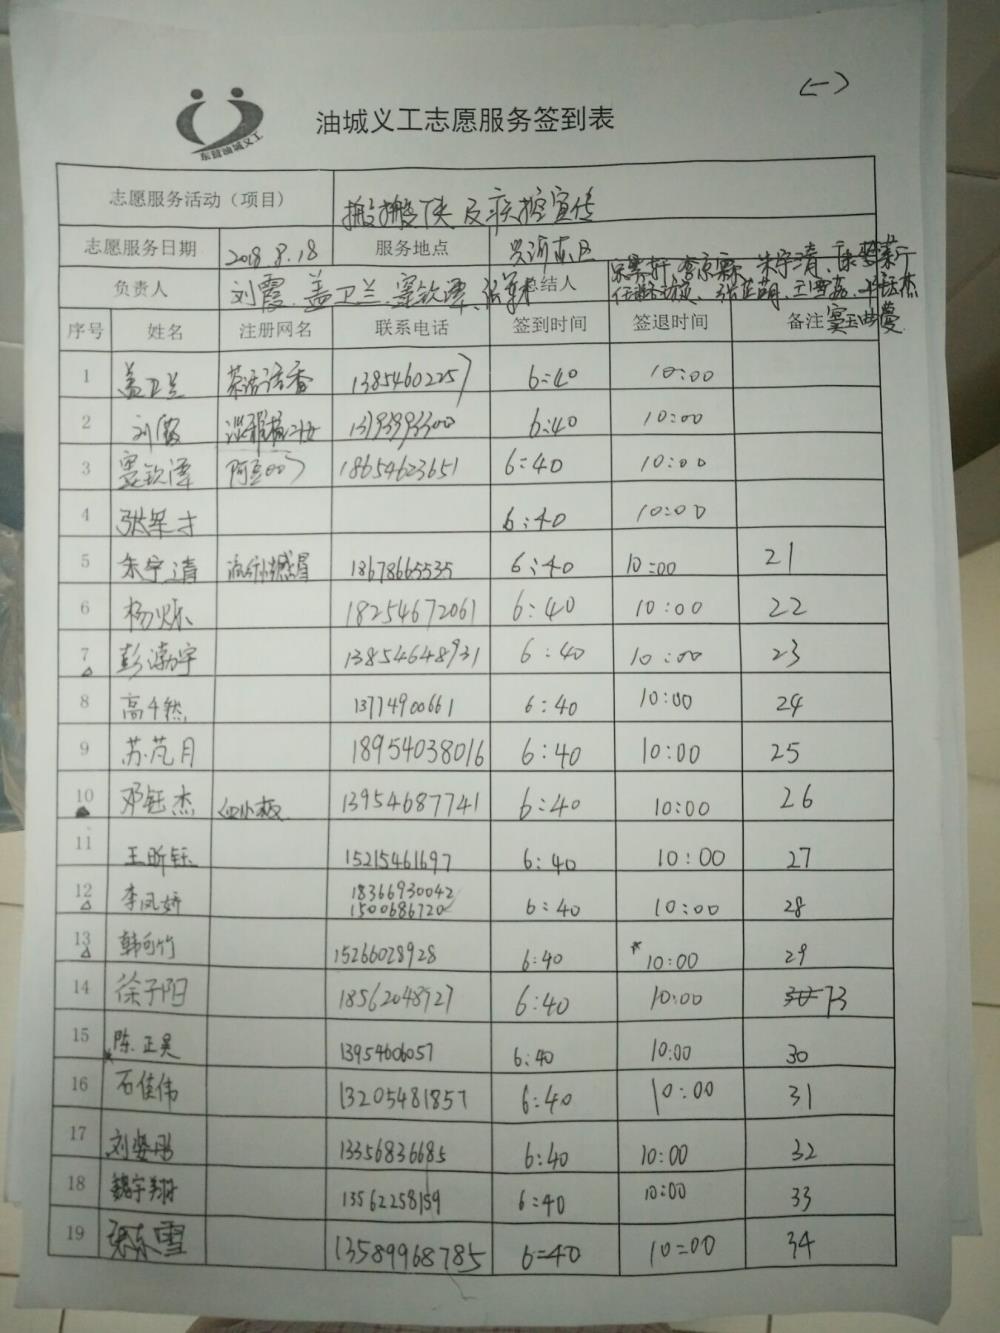 (一)
东营油城义工
油城义工志愿服务签到表
志愿服务活动（项目） 搬搬侠及疾控宣传
志愿服务日期 2018.8.18 服务地点
负责人 刘霞、盖卫兰、窦钦谭、张军才 总结人 朱宇清、
序号 姓名 注册网名 联系电话 签到时间 签退时间 备注
1 盖卫兰 茶话话香 13854602257 6:40 10:00
2 刘霞 6:40 10:00
3 窦钦谭 阿豆007 18654623651 6:40 10:00
4 张军才 6:40 10:00
5 朱宇清 流行性感冒 18678665535 6:40 10:00 21
6 杨烁 18254672061 6:40 10:00 22
7 彭渤宇 13854648931 6:40 10:00 23
8 高千然 13774900661 6:40 10:00 24
9 苏芃月 18954038016 6:40 10:00 25
10 邓钰杰 13954687741 6:40 10:00 26
11 王昕钰 15215461697 6:40 10:00 27
12 李凤娇 18366930042 6:40 10:00 28
1500686720
13 韩向竹 15266028928 6:40 10:00 29
14 徐子阳 18562048727 6:40 10:00 73
15 陈正昊 13954606057 6:40 10:00 30
16 石佳伟 13205481857 6:40 10:00 31
17 刘姿彤 13356836685 6:40 10:00 32
18 魏宇翔 13562258159 6:40 10:00 33
19 张东雪 13589968785 6=40 10=00 34